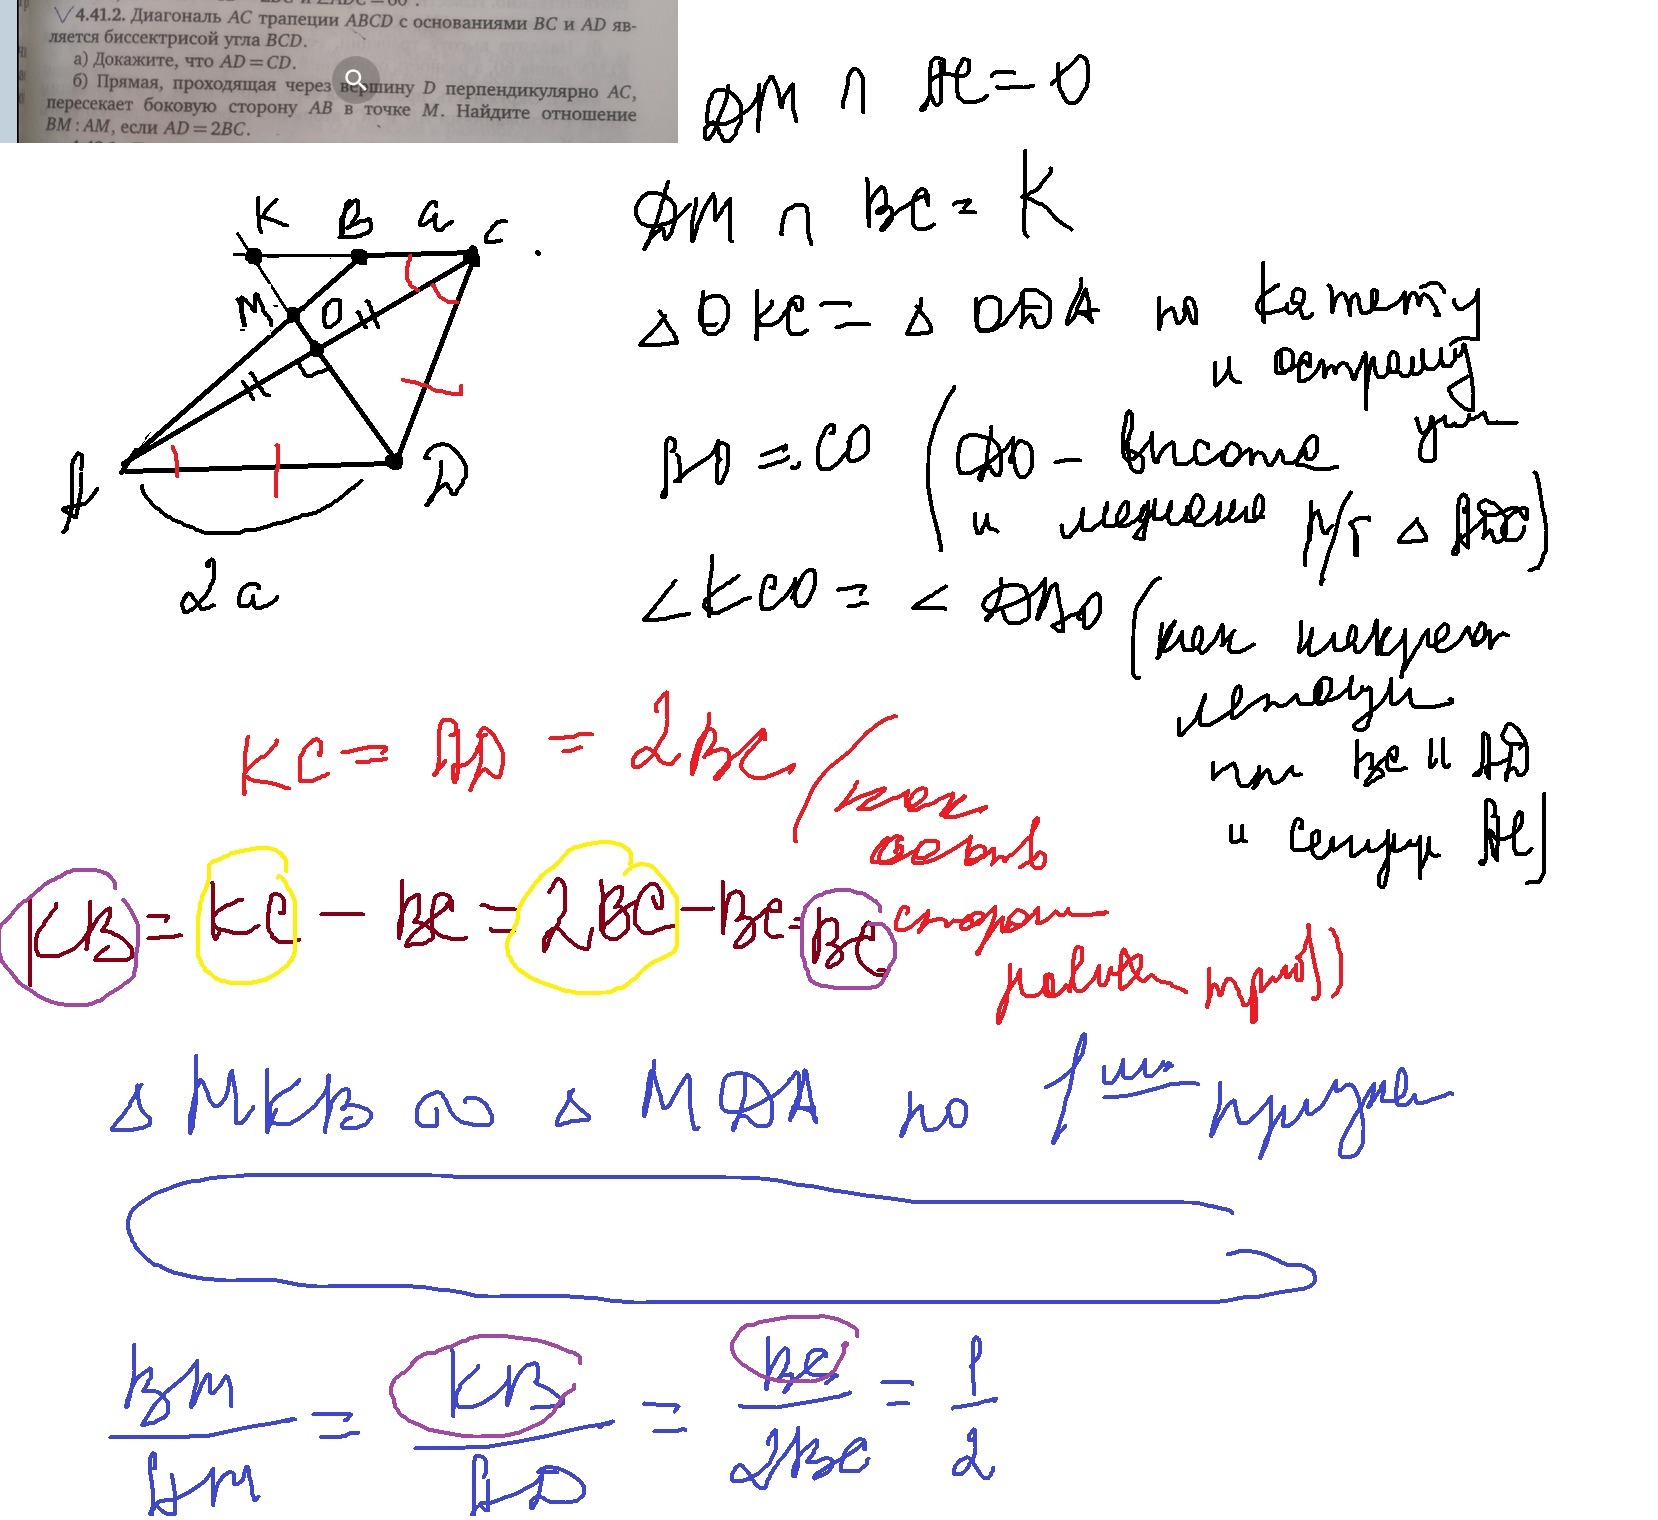 √4.41.2. Диагональ AC трапеции ABCD с основаниями BC и AD яв-
ляется биссектрисой угла BCD.
а) Докажите, что AD=CD.
б) Прямая, проходящая через вершину D перпендикулярно AC,
пересекает боковую сторону AB в точке M. Найдите отношение
BM : AM, если AD=2BC.
DM ∩ AC = O
DM ∩ BC = K
K B a C
M O
A D
2a
△OKC = △ODA по катету
и острому
углу
AO = CO (DO – высота
и медиана р/б △ADC)
∠KCO = ∠DAO (как накрест
лежащи
при BC || AD
и секущ AC)
KC = AD = 2BC (как
соотв
сторон
равных треуг))
KB = KC – BC = 2BC – BC = BC
△MKB ∞ △MDA по 1 ому признаку
BM/AM = KB/AD = BC/2BC = 1/2